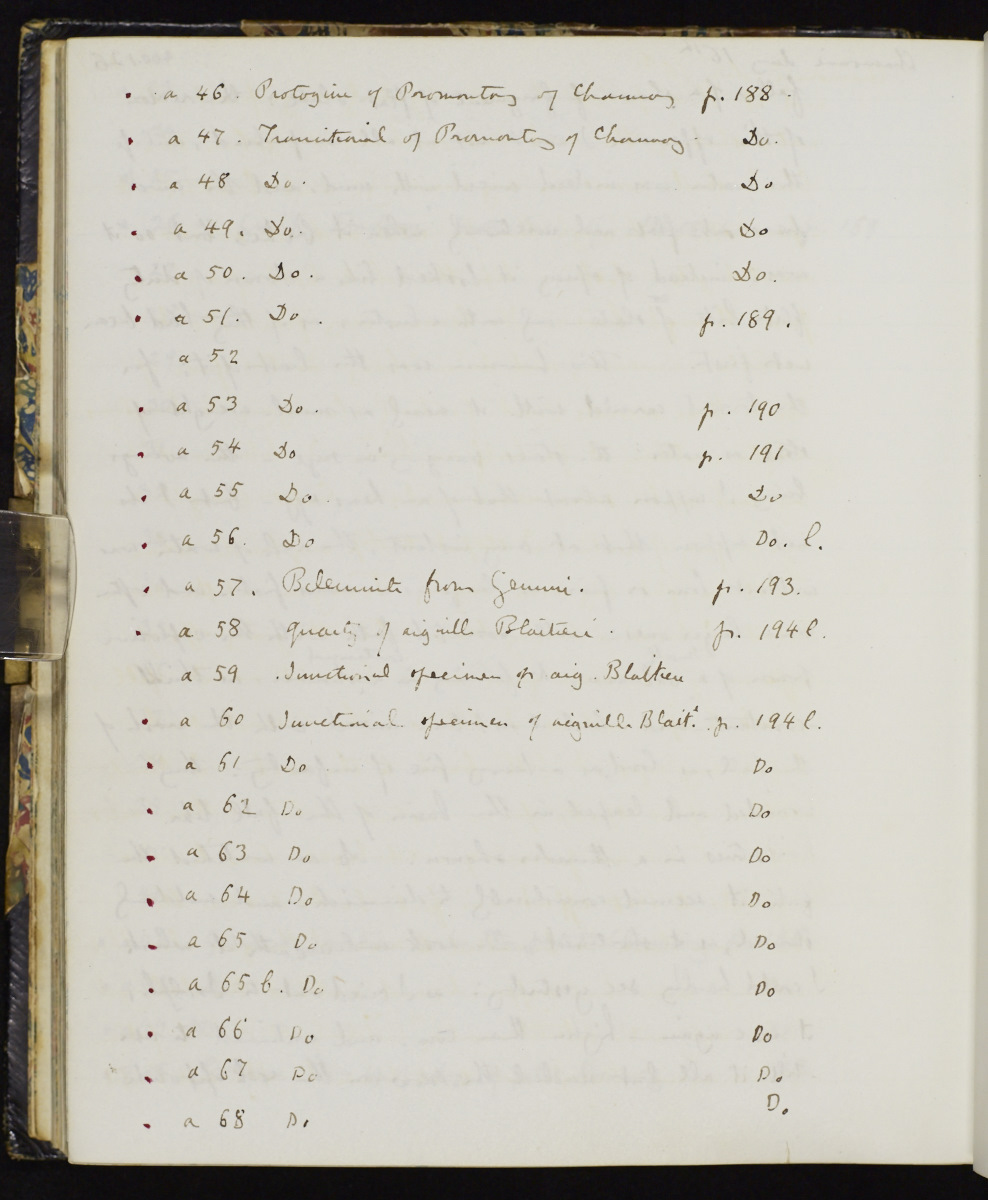 a 46. Protogine of Promontory of Chamouny p. 188.
a 47. Transitional of Promontory of Chamouny Do.
a 48 Do. Do
a 49. Do. Do
a 50. Do. Do.
a 51. Do. p. 189.
a 52
a 53 Do. p. 190
a 54 Do p. 191
a 55 Do. Do
a 56. Do Do. l.
a 57. Belemnite from Gemmi. p. 193.
a 58 quartz of aiguille Blaitiere. p. 194 l.
a 59 Junctional specimen of aig. Blaitiere
a 60 Junctional specimen of aiguille Blait. p. 194 l.
a 61 Do. Do
a 62 Do Do
a 63 Do Do
a 64 Do Do
a 65 Do Do
a 65 b. Do Do
a 66 Do Do
a 67 Do Do
a 68 Do Do